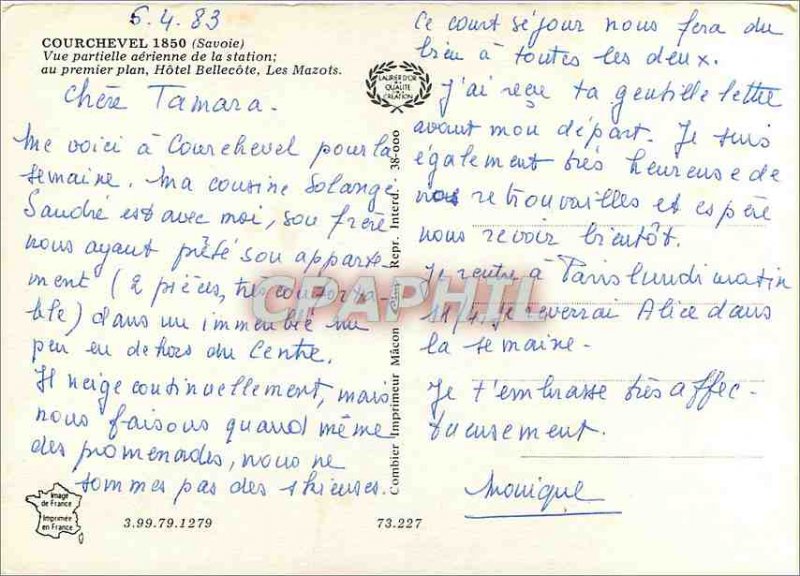 5.4.83
COURCHEVEL 1850 (Savoie)
Vue partielle aérienne de la station;
au premier plan, Hôtel Bellecôte, Les Mazots.
Chère Tamara.
Me voici à Courchevel pour la
semaine. Ma cousine Solange
Saudré est avec moi, son frère
nous ayant prêté son apparte-
ment (2 pièces, très conforta-
ble) dans un immeuble un
peu en dehors du Centre.
Il neige continuellement, mais
nous faisons quand même
des promenades, nous ne
sommes pas des skieuses.
Image
de France
Imprimée
en France
3.99.79.1279
73.227
LAURIER D'OR
DE LA
QUALITÉ
CRÉATION
Combier Imprimeur Mâcon Repr. Interd. 38-000
CPAPHIL
Ce court séjour nous fera du
bien à toutes les deux.
J'ai reçu ta gentille lettre
avant mon départ. Je suis
également très heureuse de
nos retrouvailles et espère
nous revoir bientôt.
Je rentre à Paris lundi matin
11/4. Je reverrai Alice dans
la semaine.
Je t'embrasse très affec-
tueusement.
Monique